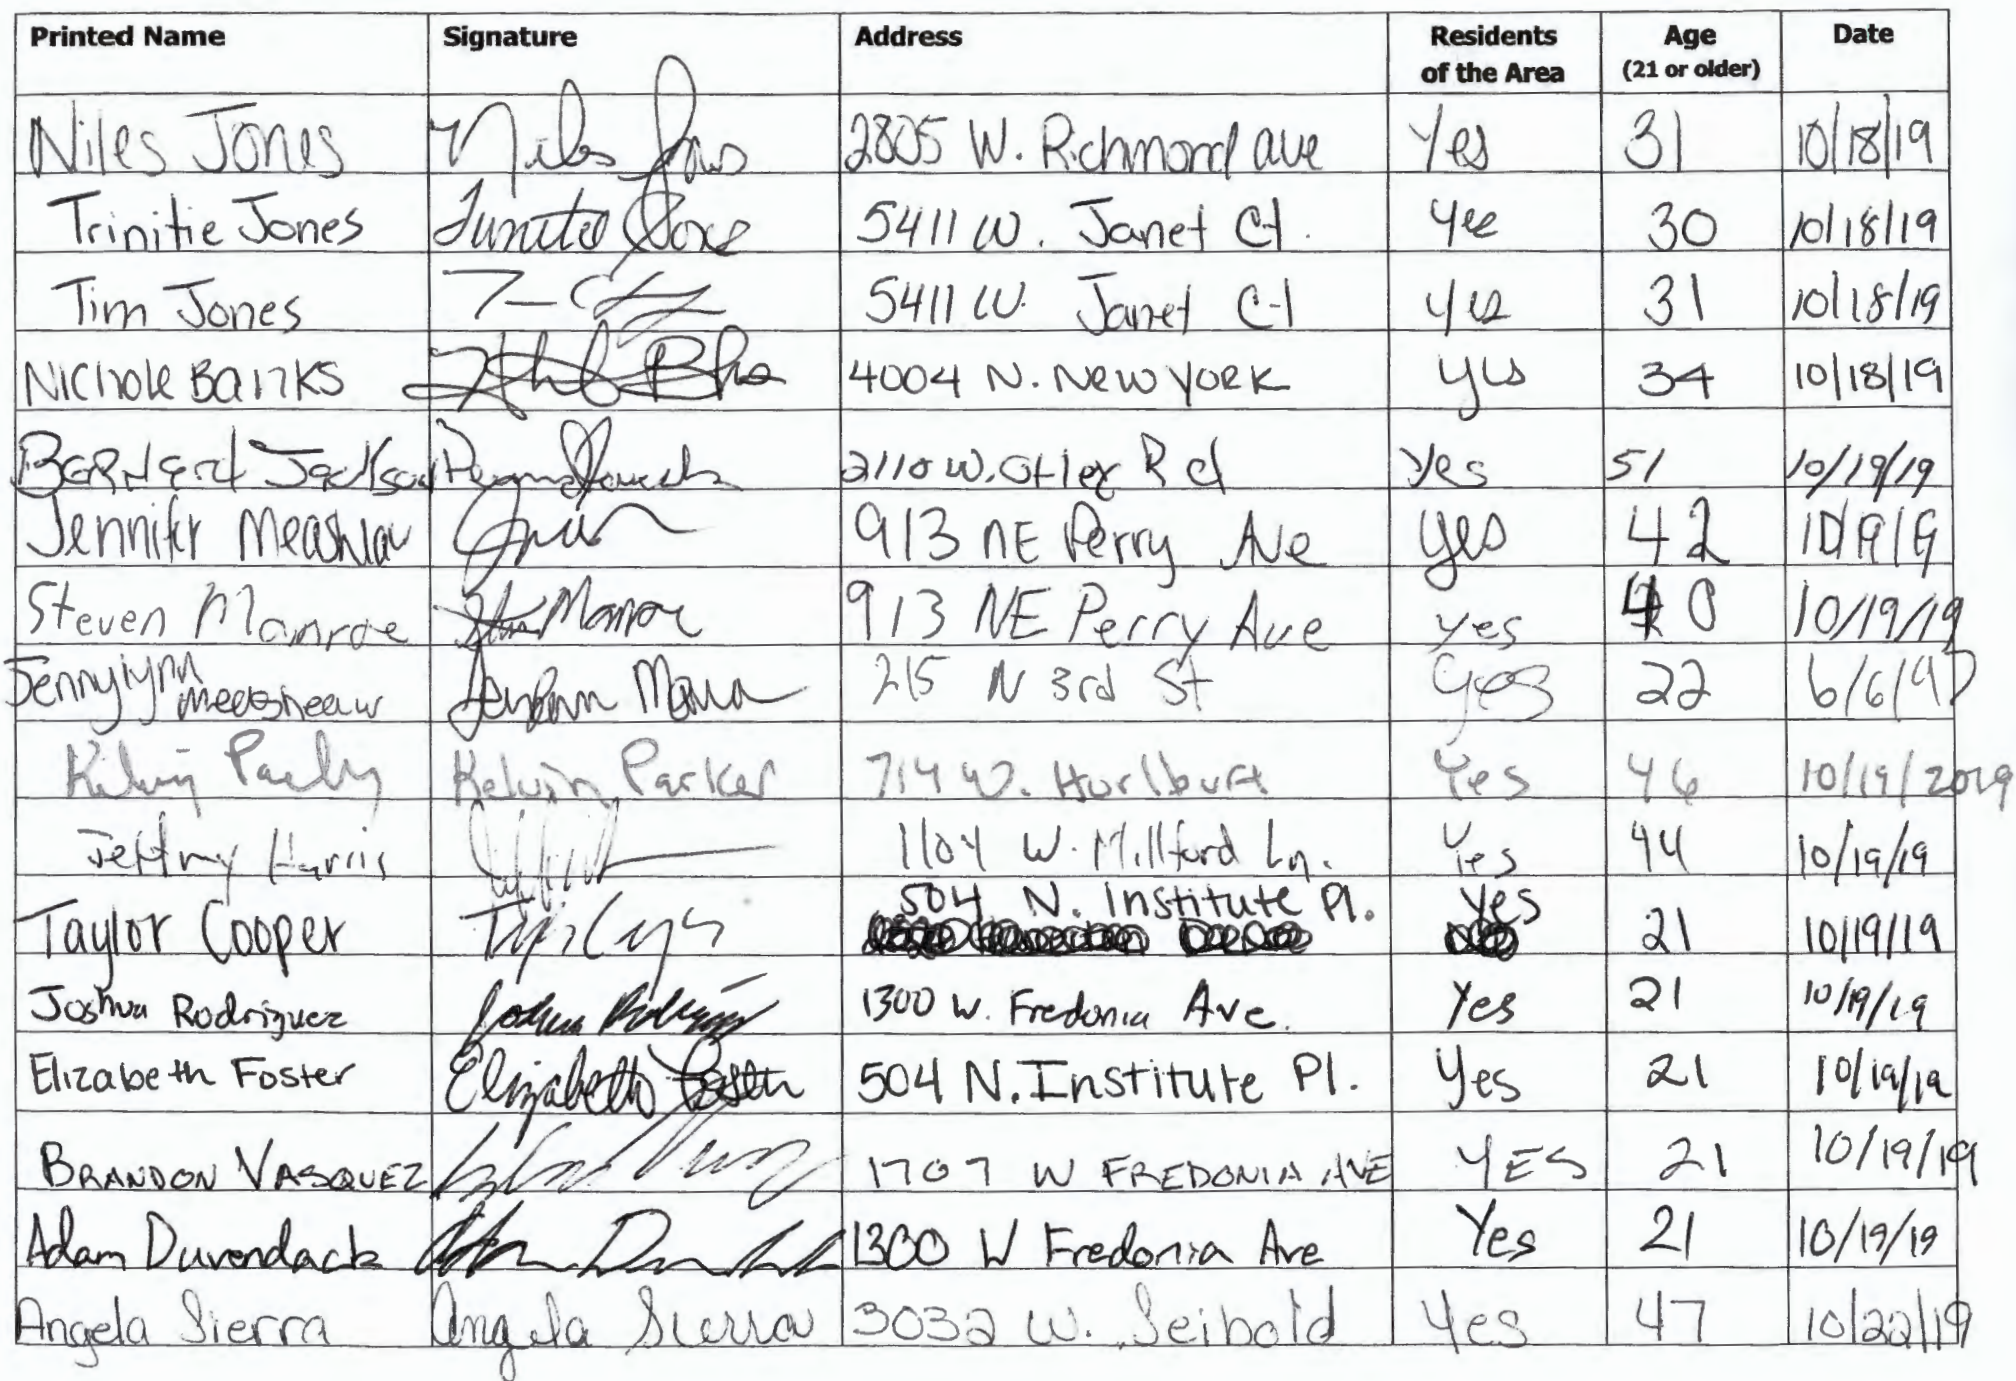 Printed Name Signature Address Residents of the Area Age (21 or older) Date
Niles Jones Niles Jones 2805 W. Richmond ave Yes 31 10/18/19
Trinitie Jones Trinitie Jones 5411 W. Janet Ct. Yes 30 10/18/19
Tim Jones 5411 W. Janet Ct Yes 31 10/18/19
Nichole Banks 4004 N. New York yes 34 10/18/19
Bernard Jackson 2110 W. Rd Yes 51 10/19/19
Jennifer 913 NE Perry Ave yes 42
Steven Monroe Monroe 913 NE Perry Ave yes 40 10/19/19
Jennylynn 215 N 3rd St yes 22 6/6/97
Kelvin Parker 714 W. Hurlburt Yes 46 10/19/2019
Jeffrey Harris 1104 W. Millford Ln. Yes 44 10/19/19
Taylor Cooper 504 N. Institute Pl. Yes 21 10/19/19
Joshua Rodriguez Joshua Rodriguez 1300 W. Fredonia Ave. Yes 21 10/19/19
Elizabeth Foster Elizabeth Foster 504 N. Institute Pl. Yes 21 10/19/19
BRANDON VASQUEZ 1707 W FREDONIA AVE YES 21 10/19/19
Adam Duvendack 1300 W Fredonia Ave Yes 21 10/19/19
Angela Sierra Angela Sierra 3032 W. Seibold Yes 47 10/22/19